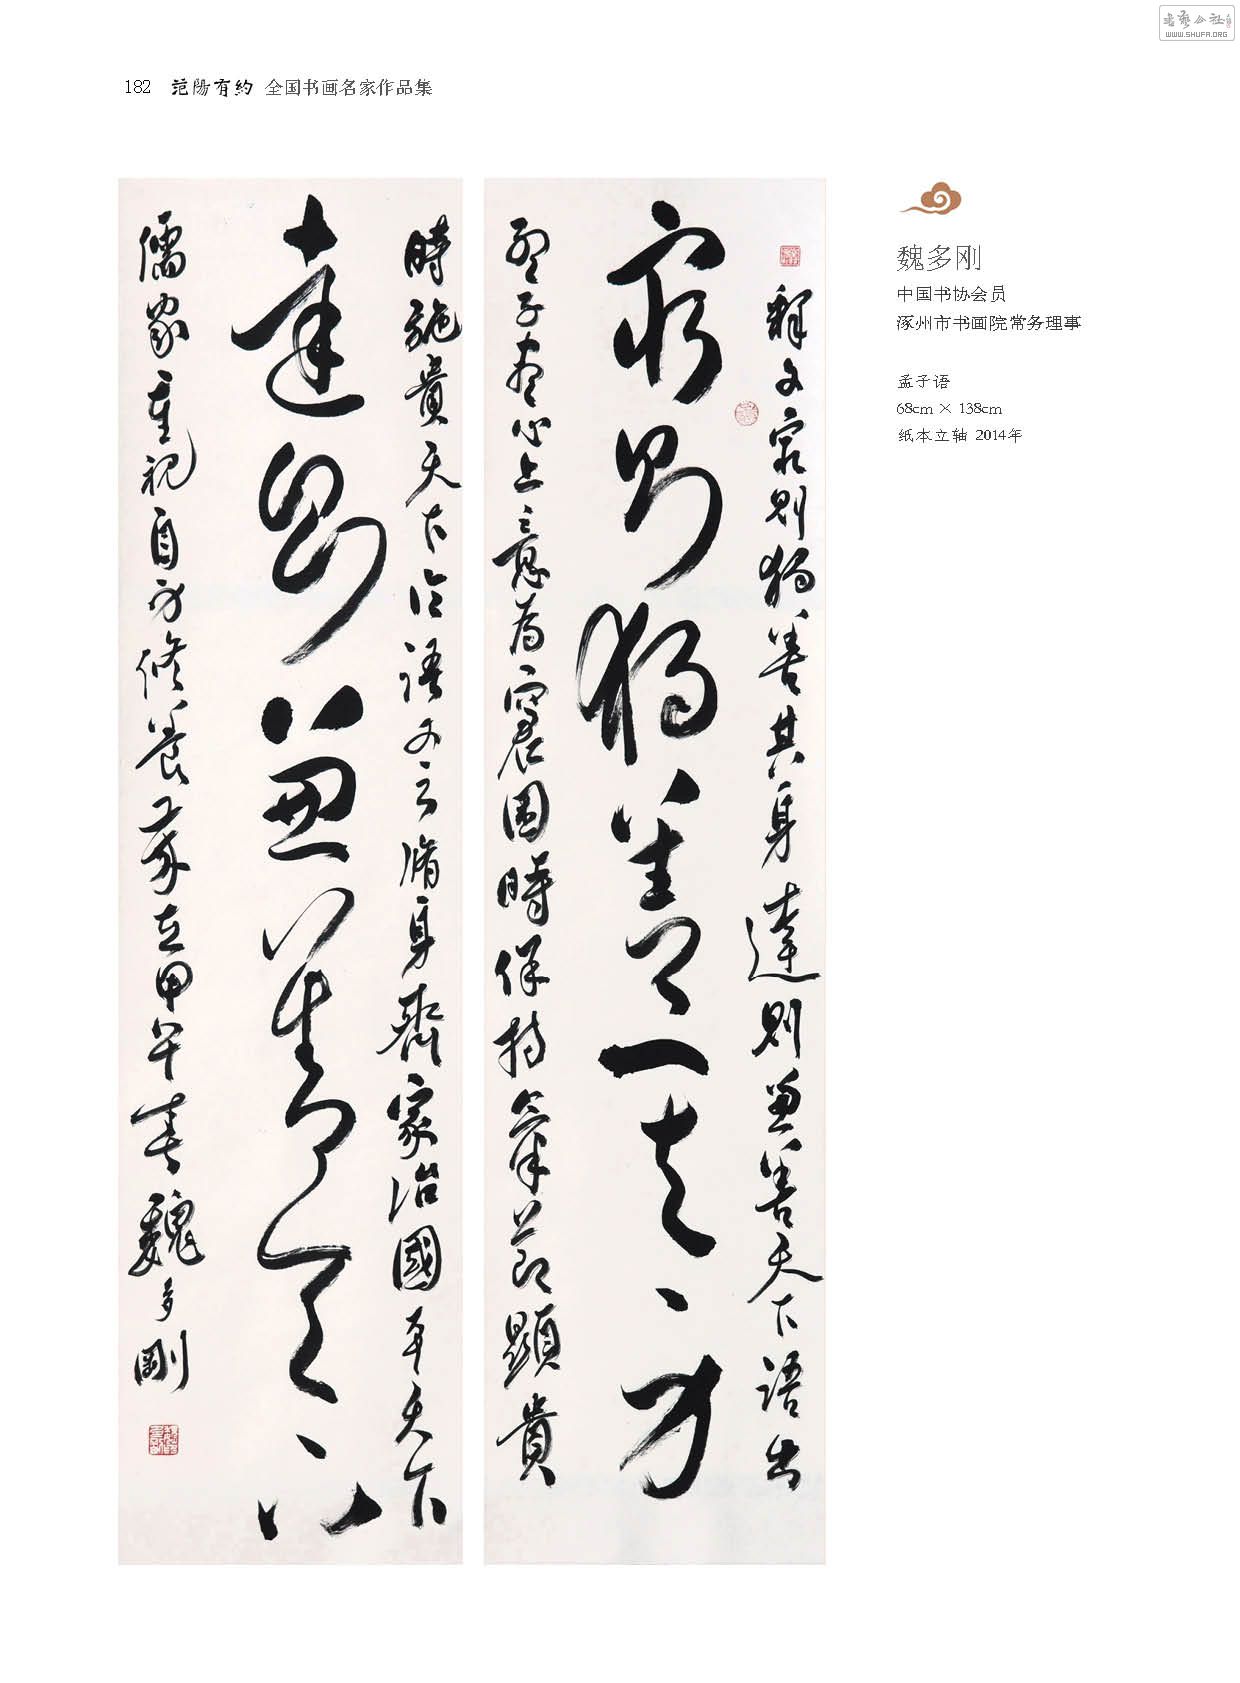 書藝公社
WWW.SHUFA.ORG
182 范陽有約 全国书画名家作品集
魏多刚
中国书协会员
涿州市书画院常务理事
孟子语
68cm × 138cm
纸本立轴 2014年
釋文窮則獨善其身達則兼善天下語出
窮則獨善其身
孟子盡心上意為窮困時保持氣節顯貴
時施貴天下論語又云脩身齊家治國平天下
達則兼善天下
儒家重視自身修養歲在甲午春魏多剛